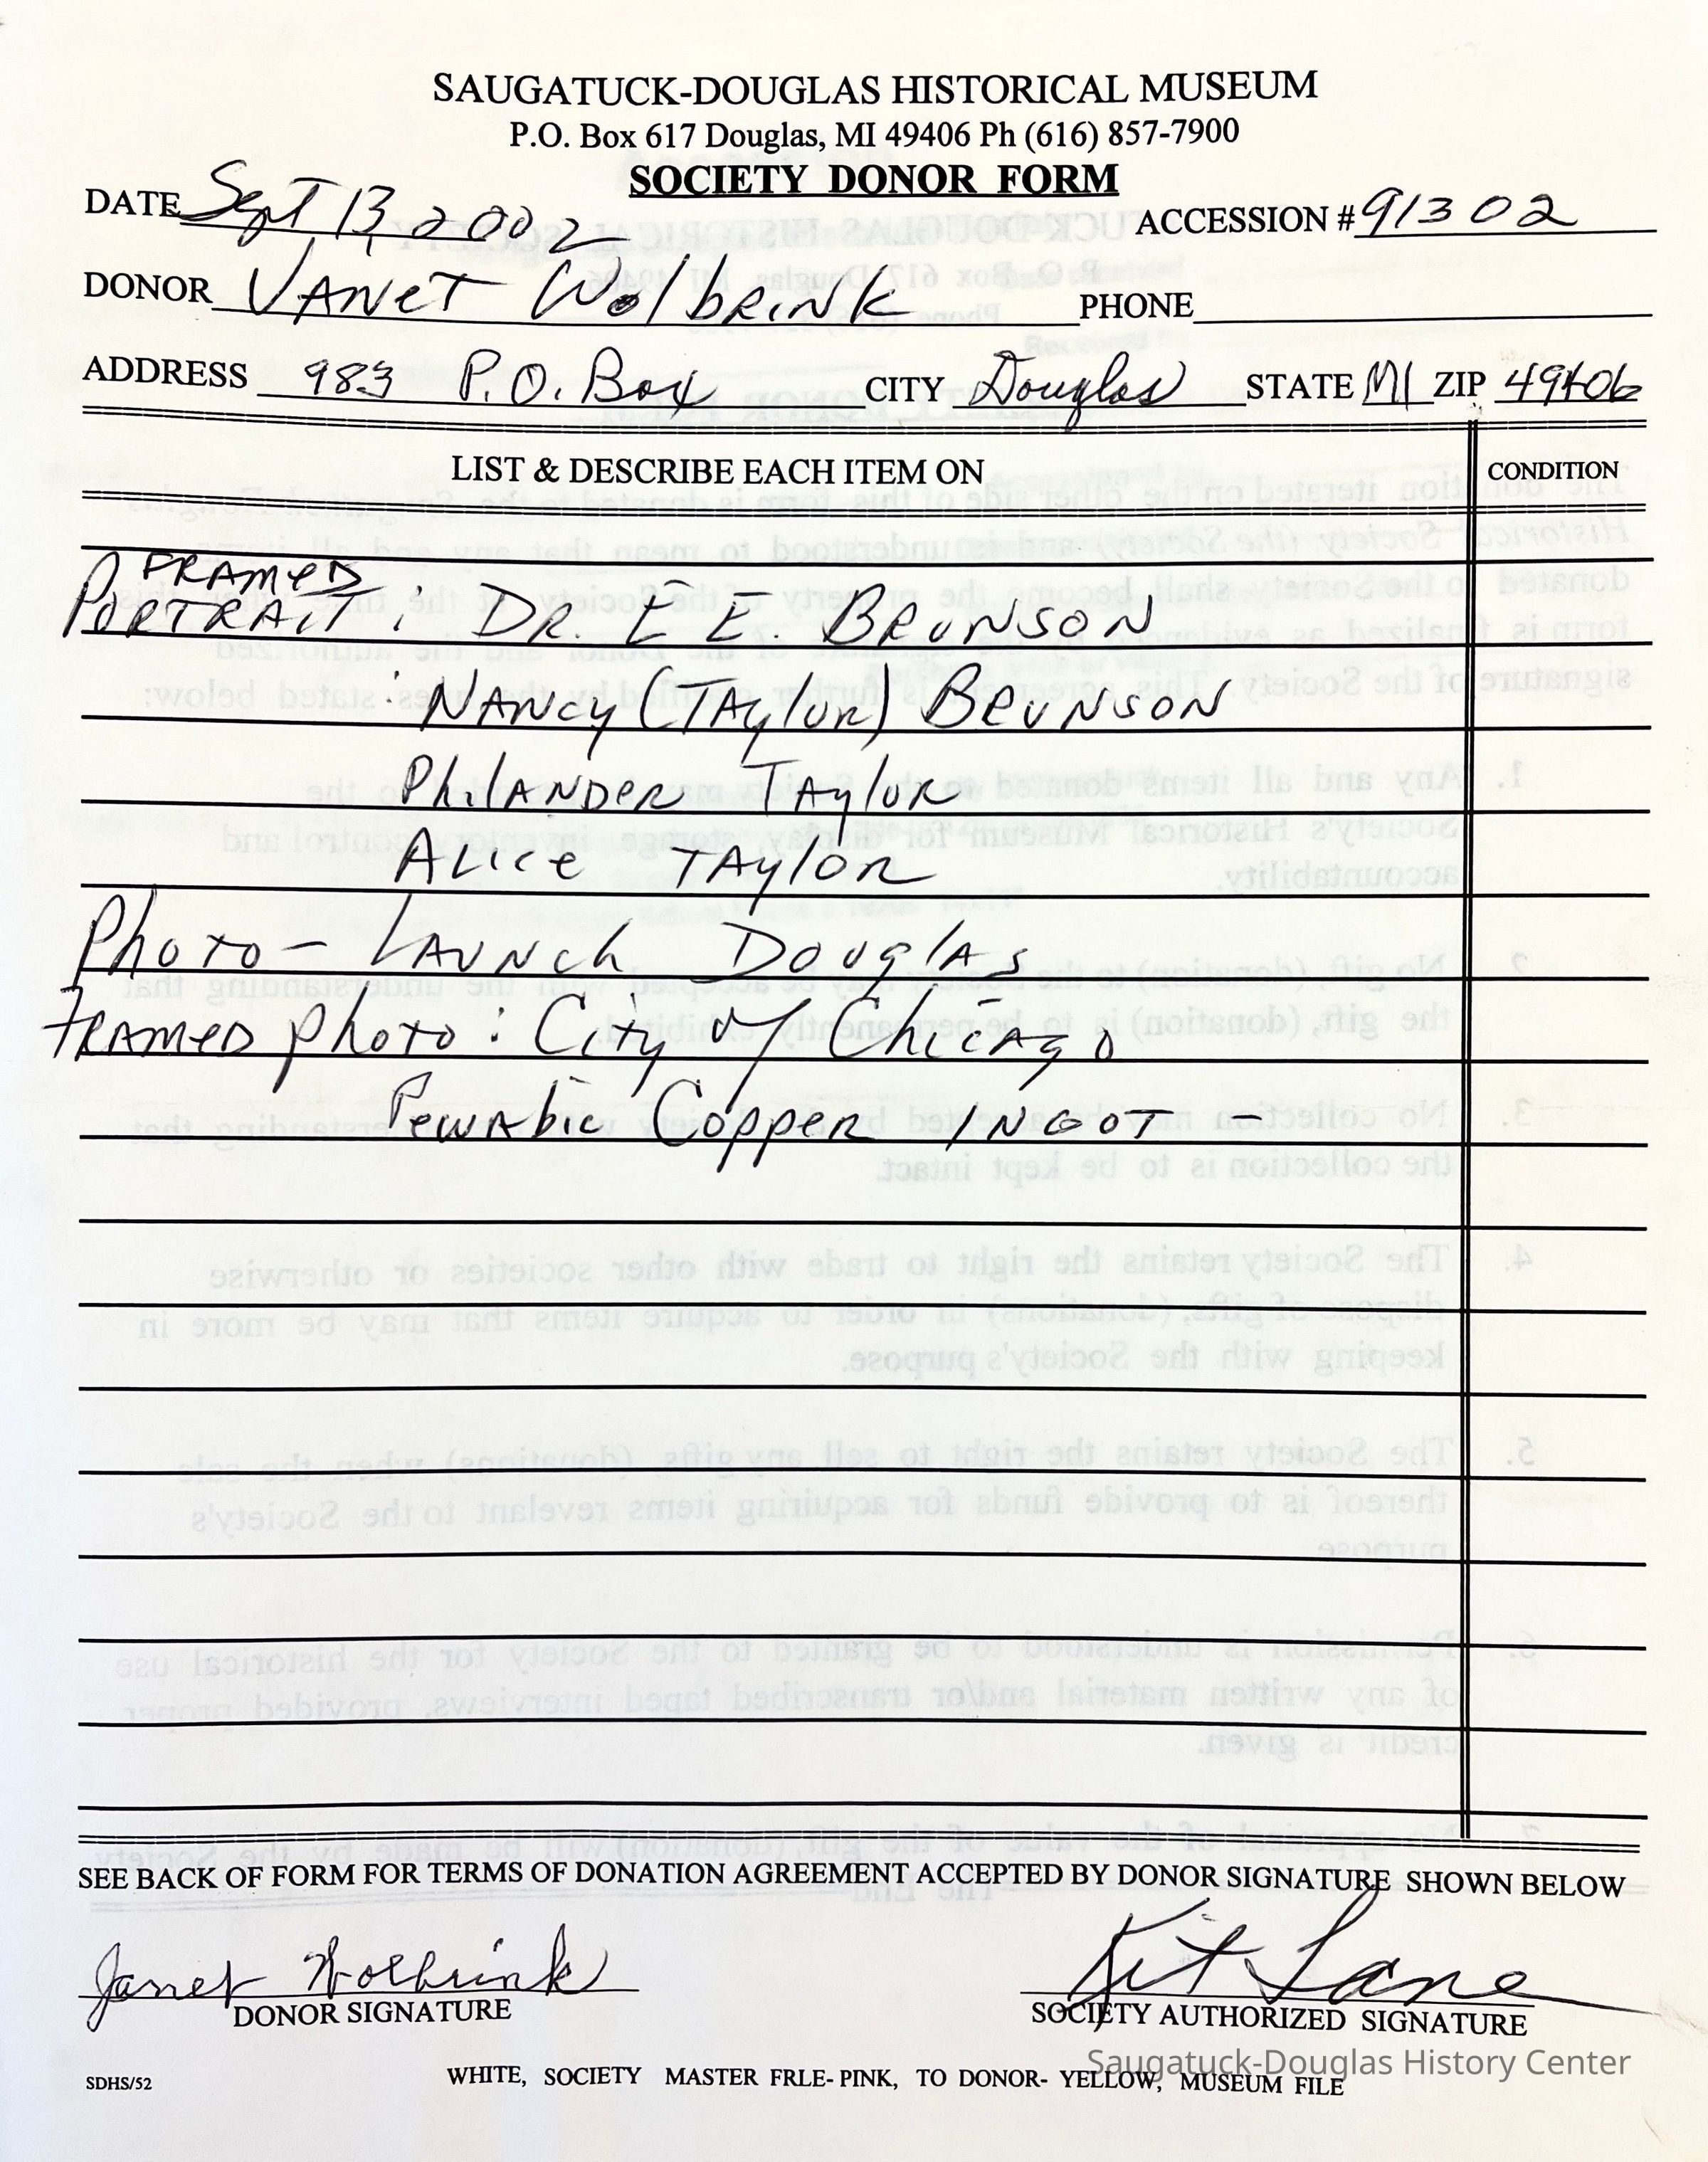 SAUGATUCK-DOUGLAS HISTORICAL MUSEUM
P.O. Box 617 Douglas, MI 49406 Ph (616) 857-7900
SOCIETY DONOR FORM
DATE Sept 13, 2002
ACCESSION # 91302
DONOR JANET Wolbrink PHONE
ADDRESS 983 P.O. Box CITY Douglas STATE MI ZIP 49406
LIST & DESCRIBE EACH ITEM ON CONDITION
FRAMED
PORTRAIT : DR. E E. BRUNSON
: NANCY (TAylor) BRUNSON
PhilANDER TAylor
Alice TAylor
Photo - LAUNch DouglAs
FRAMED photo : City of Chicago
Pewabic Copper INGOT -
SEE BACK OF FORM FOR TERMS OF DONATION AGREEMENT ACCEPTED BY DONOR SIGNATURE SHOWN BELOW
Janet Wolbrink Kit Lane
DONOR SIGNATURE SOCIETY AUTHORIZED SIGNATURE
Saugatuck-Douglas History Center
SDHS/52 WHITE, SOCIETY MASTER FRLE- PINK, TO DONOR- YELLOW, MUSEUM FILE